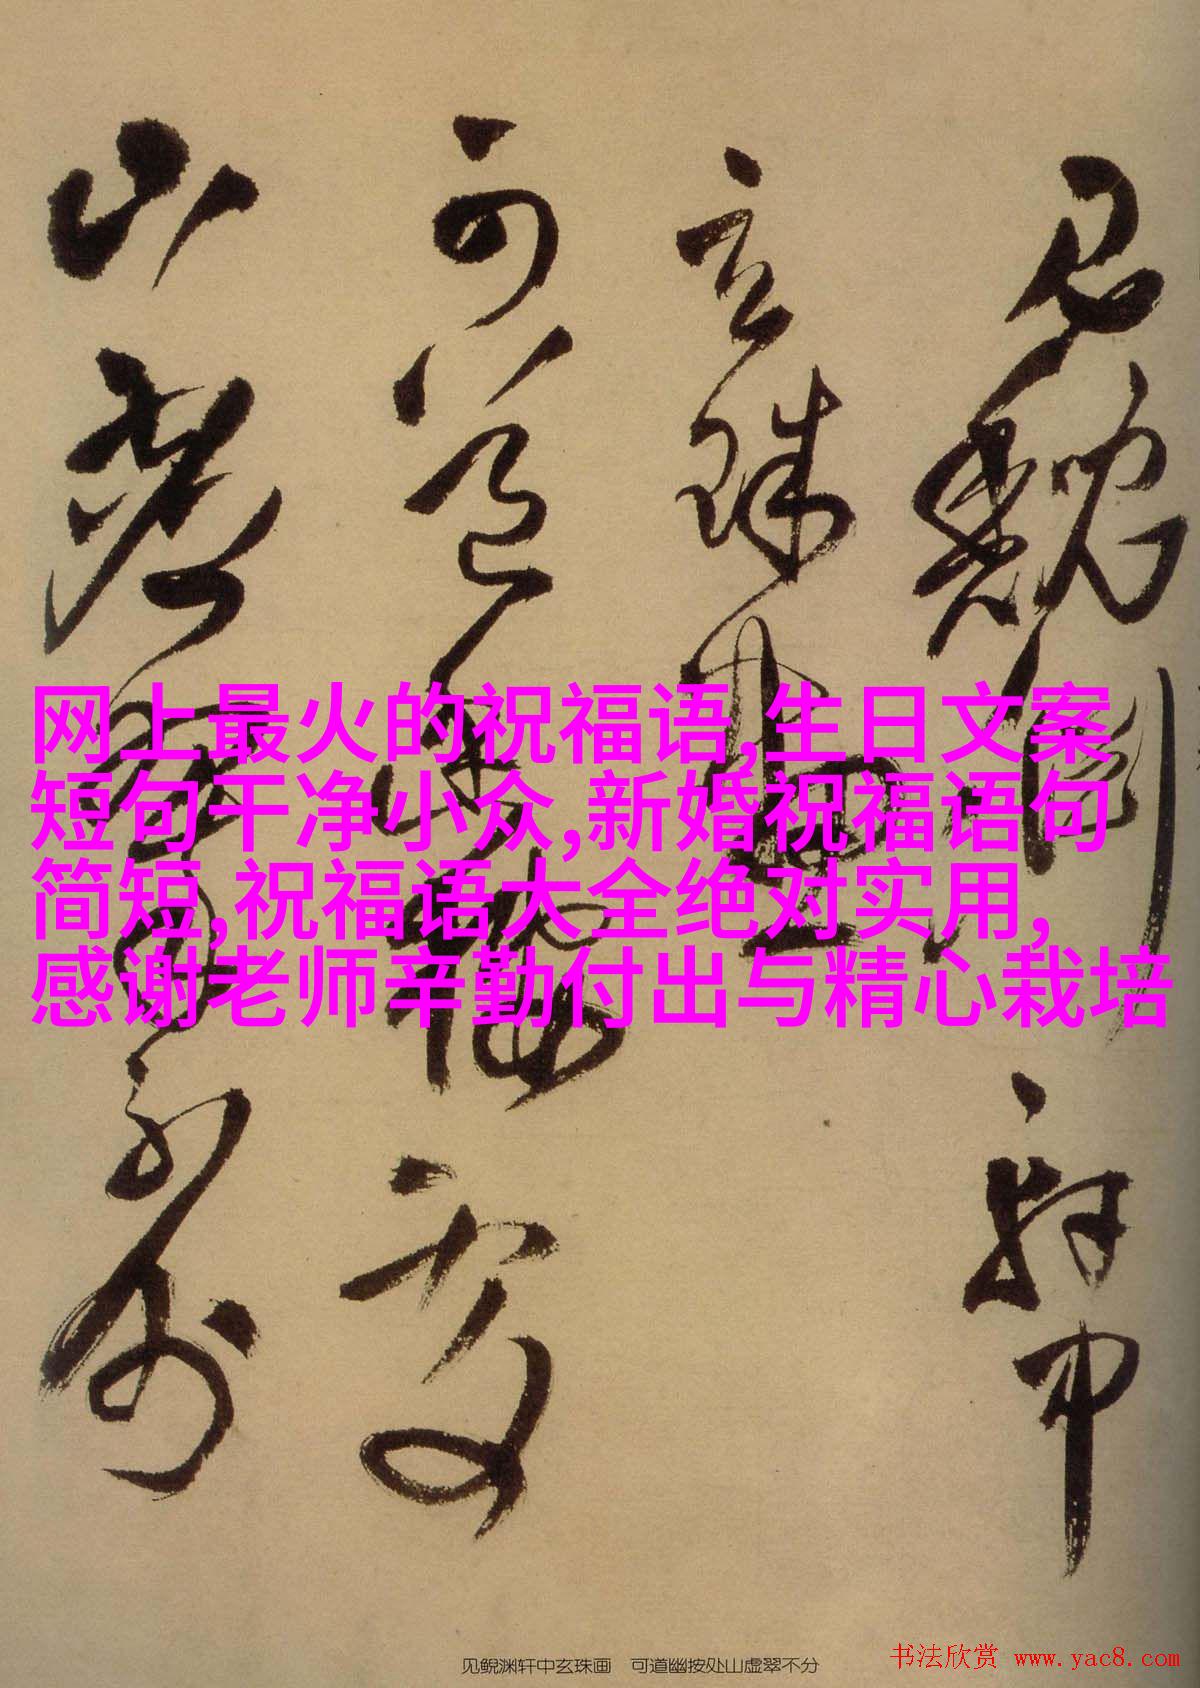 见鲵渊轩中
玄珠画
可道
山
网上最火的祝福语,生日文案
短句干净小众,新婚祝福语句
简短,祝福语大全绝对实用,
感谢老师辛勤付出与精心栽培
见鲵渊轩中玄珠画 可道幽按处山虚翠不分
书法欣赏 www.yac8.com